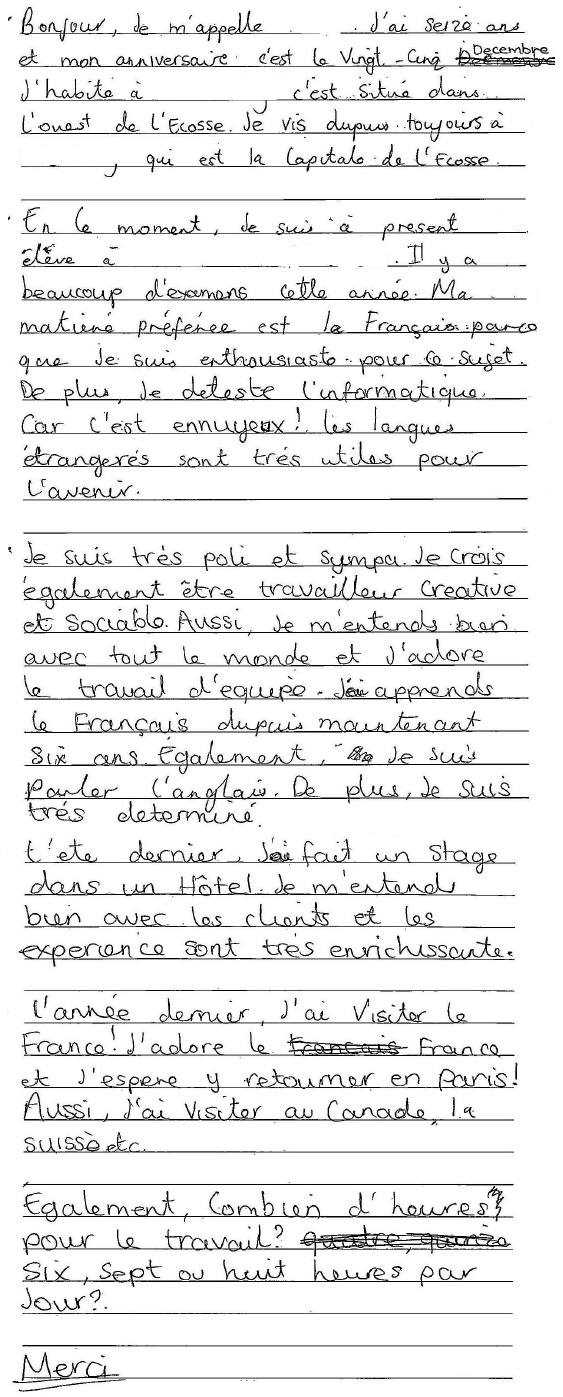 Bonjour, Je m'appelle J'ai seize ans
et mon anniversaire c'est le Vingt-Cinq Decembre
J'habite à , c'est situé dans
l'ouest de l'Ecosse. Je vis dupuis toujours à
, qui est la Capitale de l'Ecosse.
En le moment, Je suis à present
élève à . Il y a
beaucoup d'examens cette année. Ma
matiené préférée est le Français parce
que Je suis enthousiaste pour ce sujet.
De plus, Je deteste l'informatique.
Car C'est ennuyeux! les langues
étrangerés sont trés utiles pour
l'avenir.
Je suis trés poli et sympa. Je Crois
également être travailleur Creative
et Sociable. Aussi, Je m'entends bien
avec tout le monde et J'adore
le travail d'equipe. J'apprends
le Français dupuis maintenant
Six ans. Également, Je suis
parler l'anglais. De plus, Je suis
trés determiné.
l'ete dernier, J'ai fait un Stage
dans un Hôtel. Je m'entends
bien avec les clients et les
experience sont trés enrichissante.
l'année dernier, J'ai Visiter le
France! J'adore le France
et J'espere y retourner en Paris!
Aussi, J'ai Visiter au Canade, la
suisse etc.
Egalement, Combien d'heures
pour le travail?
Six, Sept ou huit heures par
Jour?
Merci